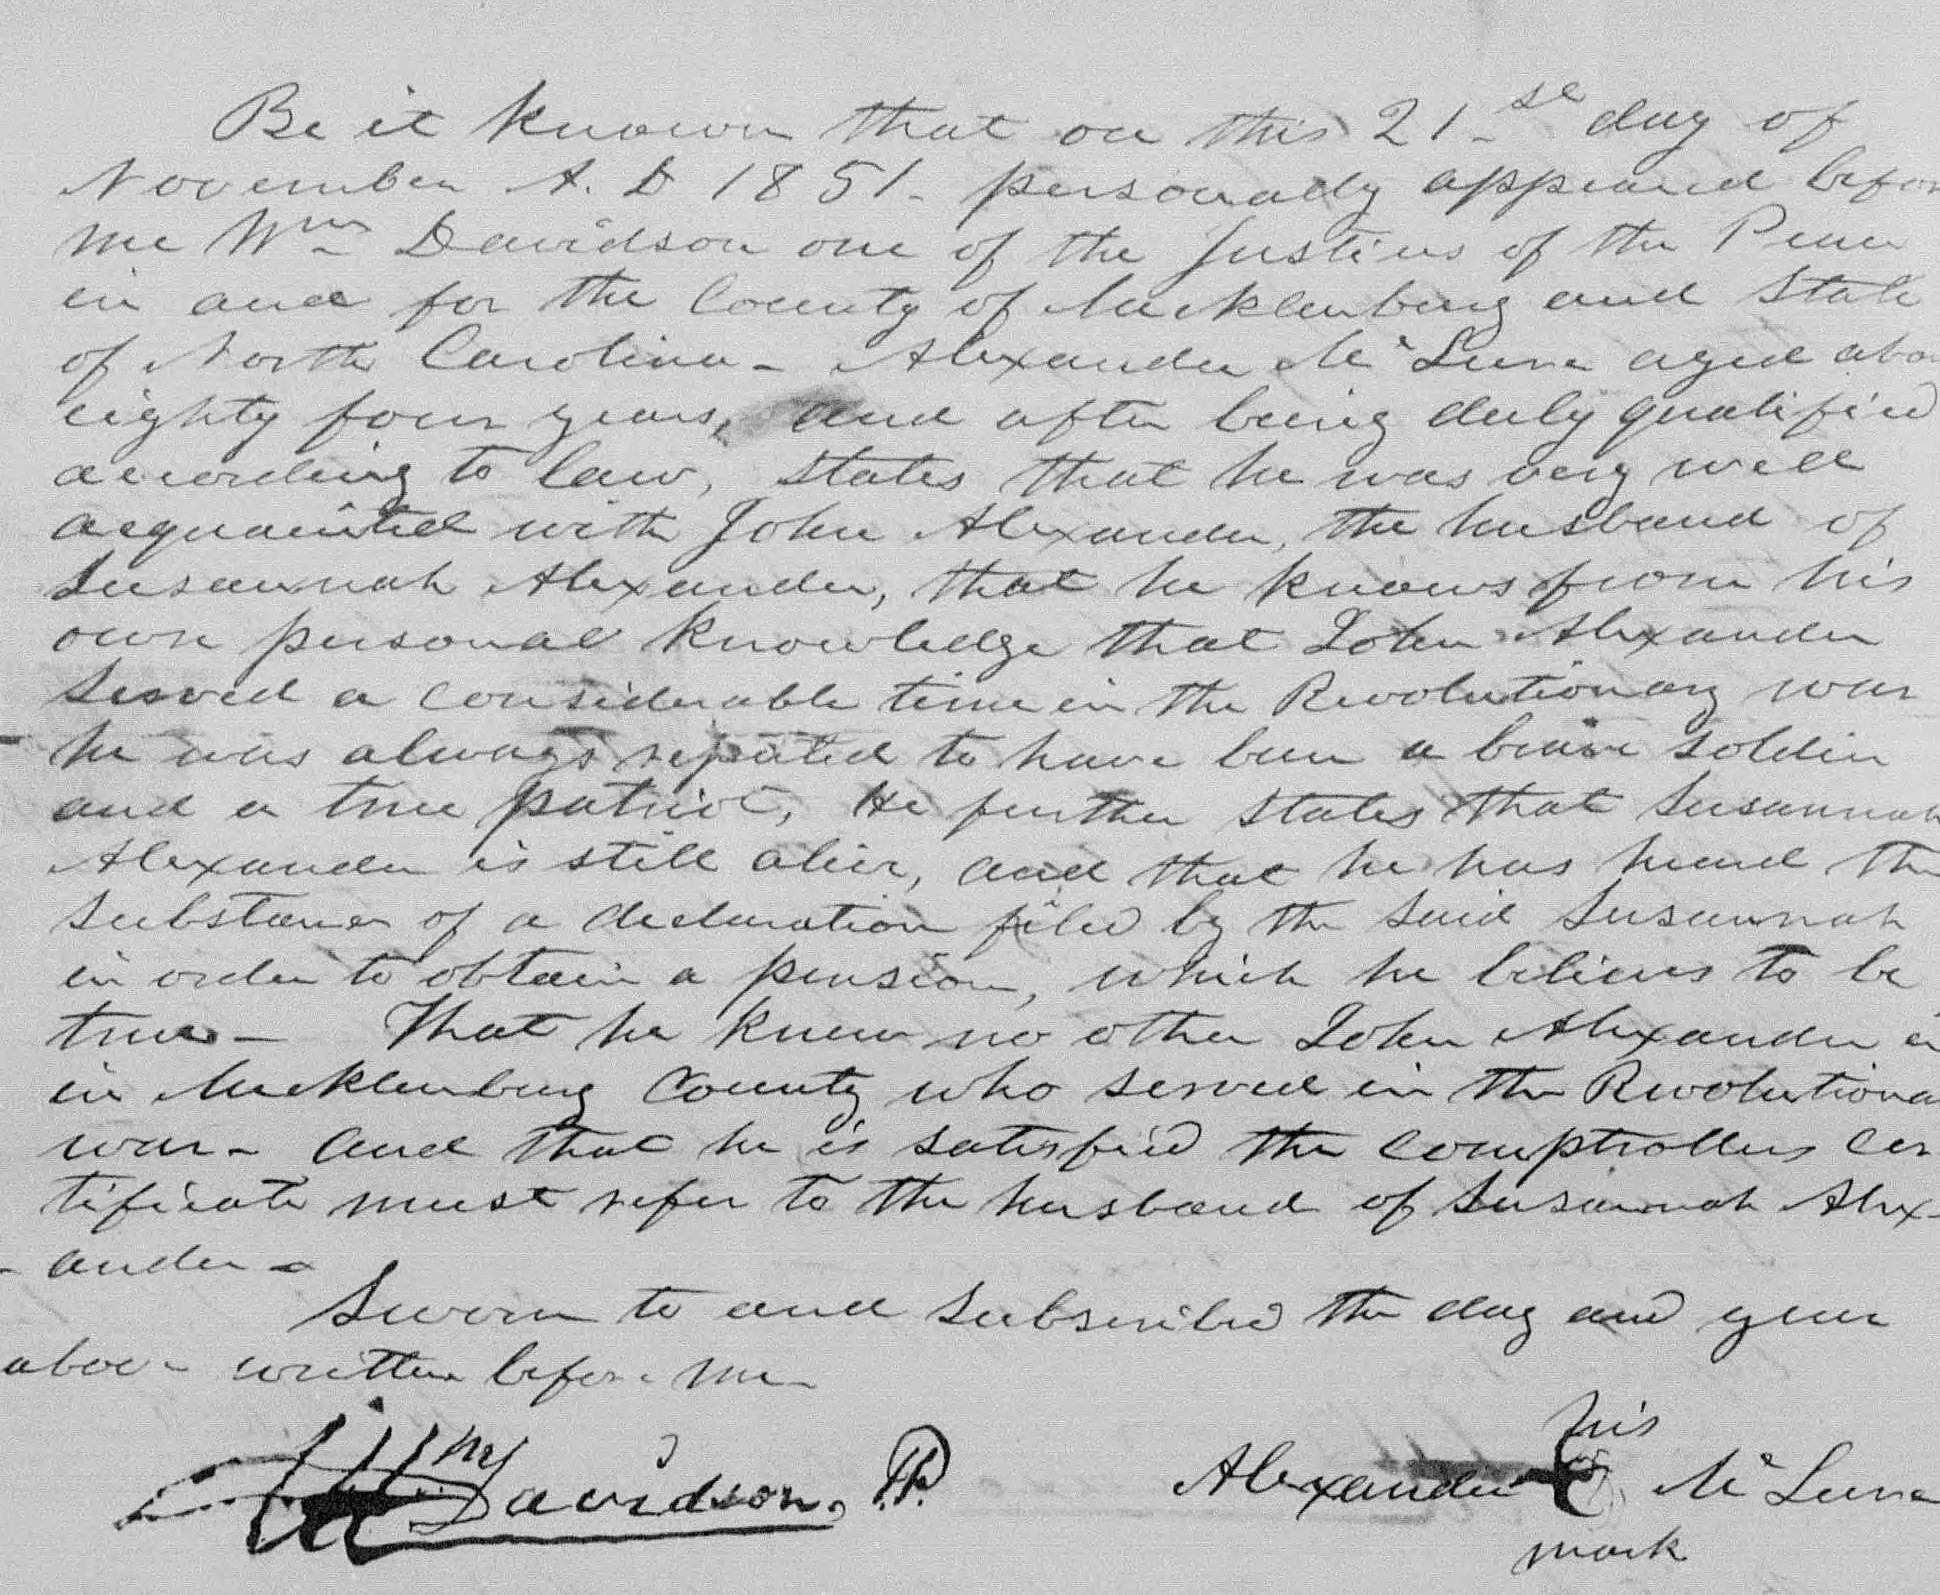 Be it known that on this 21st day of
November A. D 1851 - personally appeared befor
me Wm Davidson one of the Justices of the Peace
in and for the County of Mecklenburg and State
of North Carolina - Alexander Mc Lure aged abo
eighty four years, and after being duly qualified
according to law, states that he was very well
acquainted with John Alexander, the husband of
Susannah Alexander, that he knows from his
own personal knowledge that John Alexander
served a considerable time in the Revolutionary war
he was always reputed to have been a brave soldier
and a true patriot, He further states that Susannah
Alexander is still alive, and that he has heard the
substance of a declaration filed by the said Susannah
in order to obtain a pension, which he believes to be
true - That he knew no other John Alexander
in Mecklenburg County who served in the Revolutiona
war - and that he is satisfied the Comptrollers Cer
tificate must refer to the husband of Susannah Alex-
- ander -
Sworn to and subscribed the day and year
above written before me
Wm Davidson, JP. Alexander his Mc Lure
mark